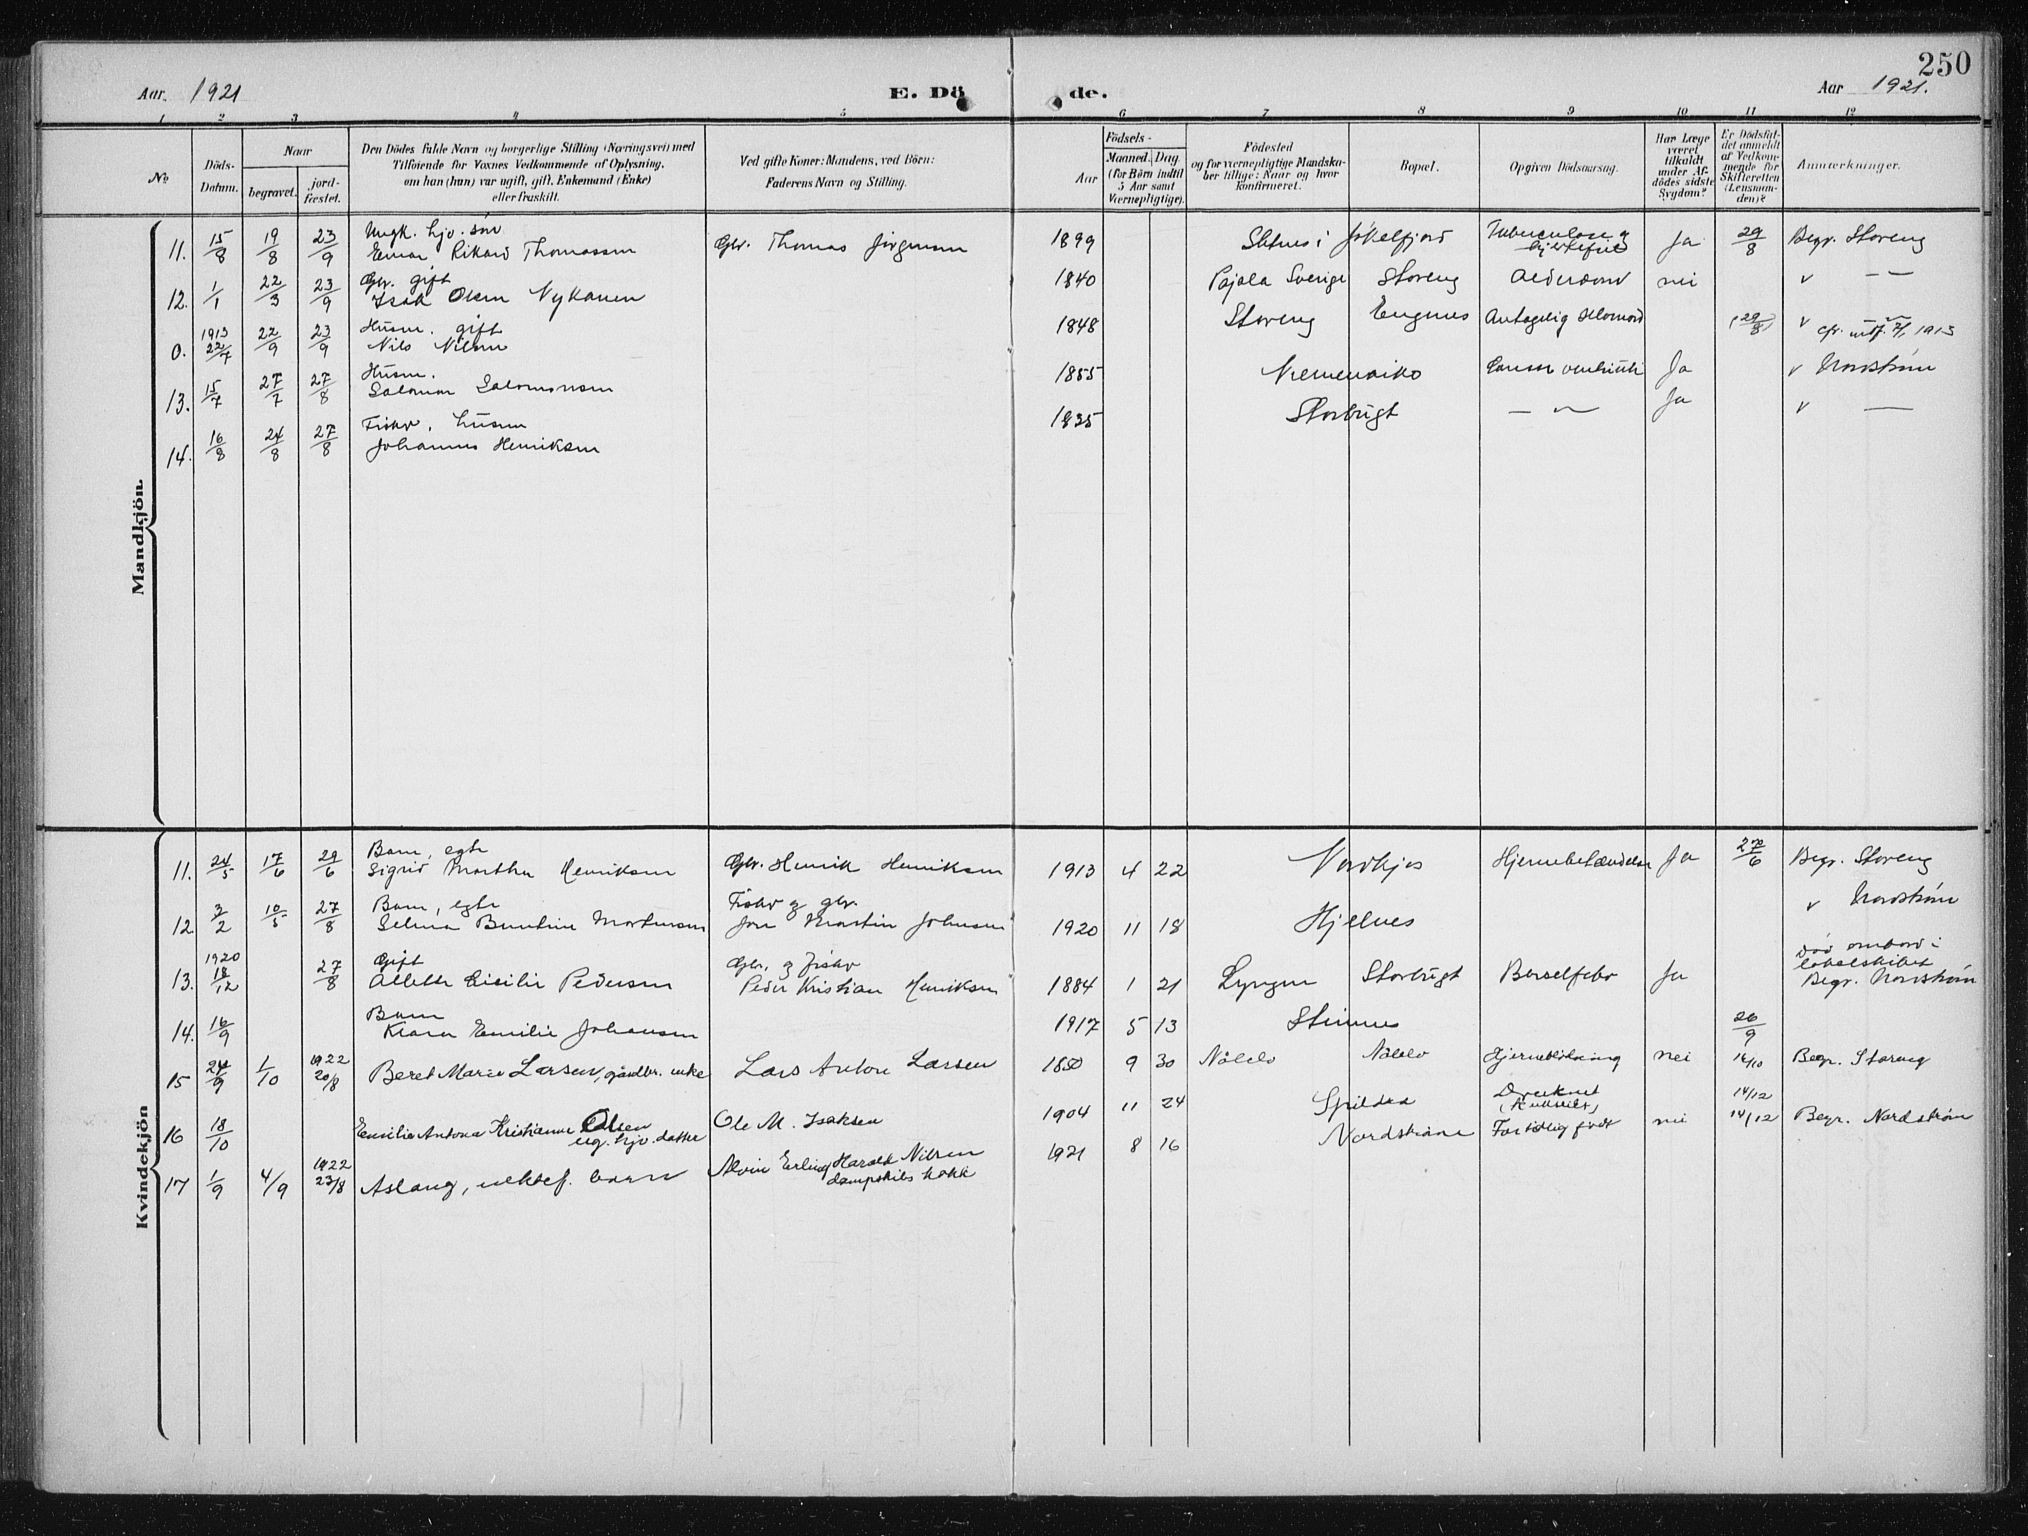 250
Aar 1921
E. Dö
de.
Aar 1921.
1 2 3 4 5 6 7 8 9 10 11 12
No
Döds-Datum.
Naar
begravet.
jord-fæstet.
Den Dödes fulde Navn og borgerlige Stilling (Næringsvei) med
Tilföiende for Voxnes Vedkommende af Oplysning,
om han (hun) var ugift, gift, Enkemand (Enke)
eller fraskilt.
Ved gifte Koner: Mandens, ved Börn:
Faderens Navn og Stilling.
Födsels-
Aar
Maaned. Dag
(for Börn indtil
5 Aar samt
Værnepligtige).
Födested
og for værnepligtige Mandska-
ber tillige: Naar og hvor
konfirmeret.
Bopæl.
Opgiven Dödsaarsag.
Har Læge
været
tilkaldt
under Af-
dödes sidste
Sygdom?
Er Dödsfal-
det anmeldt
af Vedkom-
mende for
Skifteretten
(Lensman-
den)?
Anmærkninger.
Mandkjön.
Ungk. hjv. søn
11. 15/8 19/8 23/9 Einar Rikard Thomassen Gbr. Thomas Jörgensen 1899 i Jøkelfjord Tuberculose og hjertefeil Ja 29/8 Begr. Storeng
Gbr. gift
12. 1/1 22/3 23/9 Isak Olsen Nykanen 1840 Pajala Sverige Storeng Alderdom nei v — —
Husm. gift
0. 1913 22/7 22/9 23/9 Nils Nilsen 1848 Storeng Engnes Antagelig (29/8) v cfr. 1913
Husm.
13. 15/7 27/7 27/8 Salomon Salomonsen 1855 Ja v Nordstrøm
Fisker, husm
14. 16/8 24/8 27/8 Johannes Henriksen 1835 Storbugt — — Ja v —
Kvindekjön
Barn, egte
11. 24/5 17/6 29/6 Sigrid Martha Henriksen Gbr. Henrik Henriksen 1913 4 22 Hjernebetændelse Ja 27/6 Begr. Storeng
Barn, egte Fisker og gbr.
12 3/2 10/5 27/8 Selma Mortensen Jon Martin Johnsen 1920 11 18 Hjelnes v Nordstrøm
Gift Gbr. og fisker
13. 1920 18/12 27/8 Alette Cicilie Pedersen Peder Kristian Henriksen 1884 1 21 Lyngen Storbugt Barselfeber Ja Død ombord i lokalskibet Begr. Nordstrøm
Barn
14. 16/9 Klara Emilie Johansen 1917 5 13 26/9
15 24/9 1/10 1922 20/8 Beret Marie Larsen, gaardbr. enke Lars Anton Larsen 1850 9 30 Hjerneblødning nei 14/10 Begr. Storeng
16 18/10 Emilie Antona Kristianne Olsen ug. hjv. datter Ole M. Isaksen 1904 11 24 Spildra Druknet 14/12
17 1/9 4/9 1922 23/8 Aslaug, uektef. barn Alvin Erling Harald Nilsen dampskibs kokk 1921 8 16 Nordstrøm For tidlig født nei 14/12 Begr. Nordstrøm